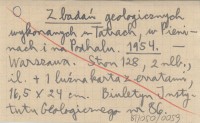 Z badań geologicznych
wykonanych w Tatrach, w Pieni-
nach i na Podhalu. 1954. —
Warszawa. Stron 128, 2 nlb.,
il. + 1 luźna karta z erratami,
16,5 x 24 cm. Biuletyn Insty-
tutu Geologicznego nr 86.